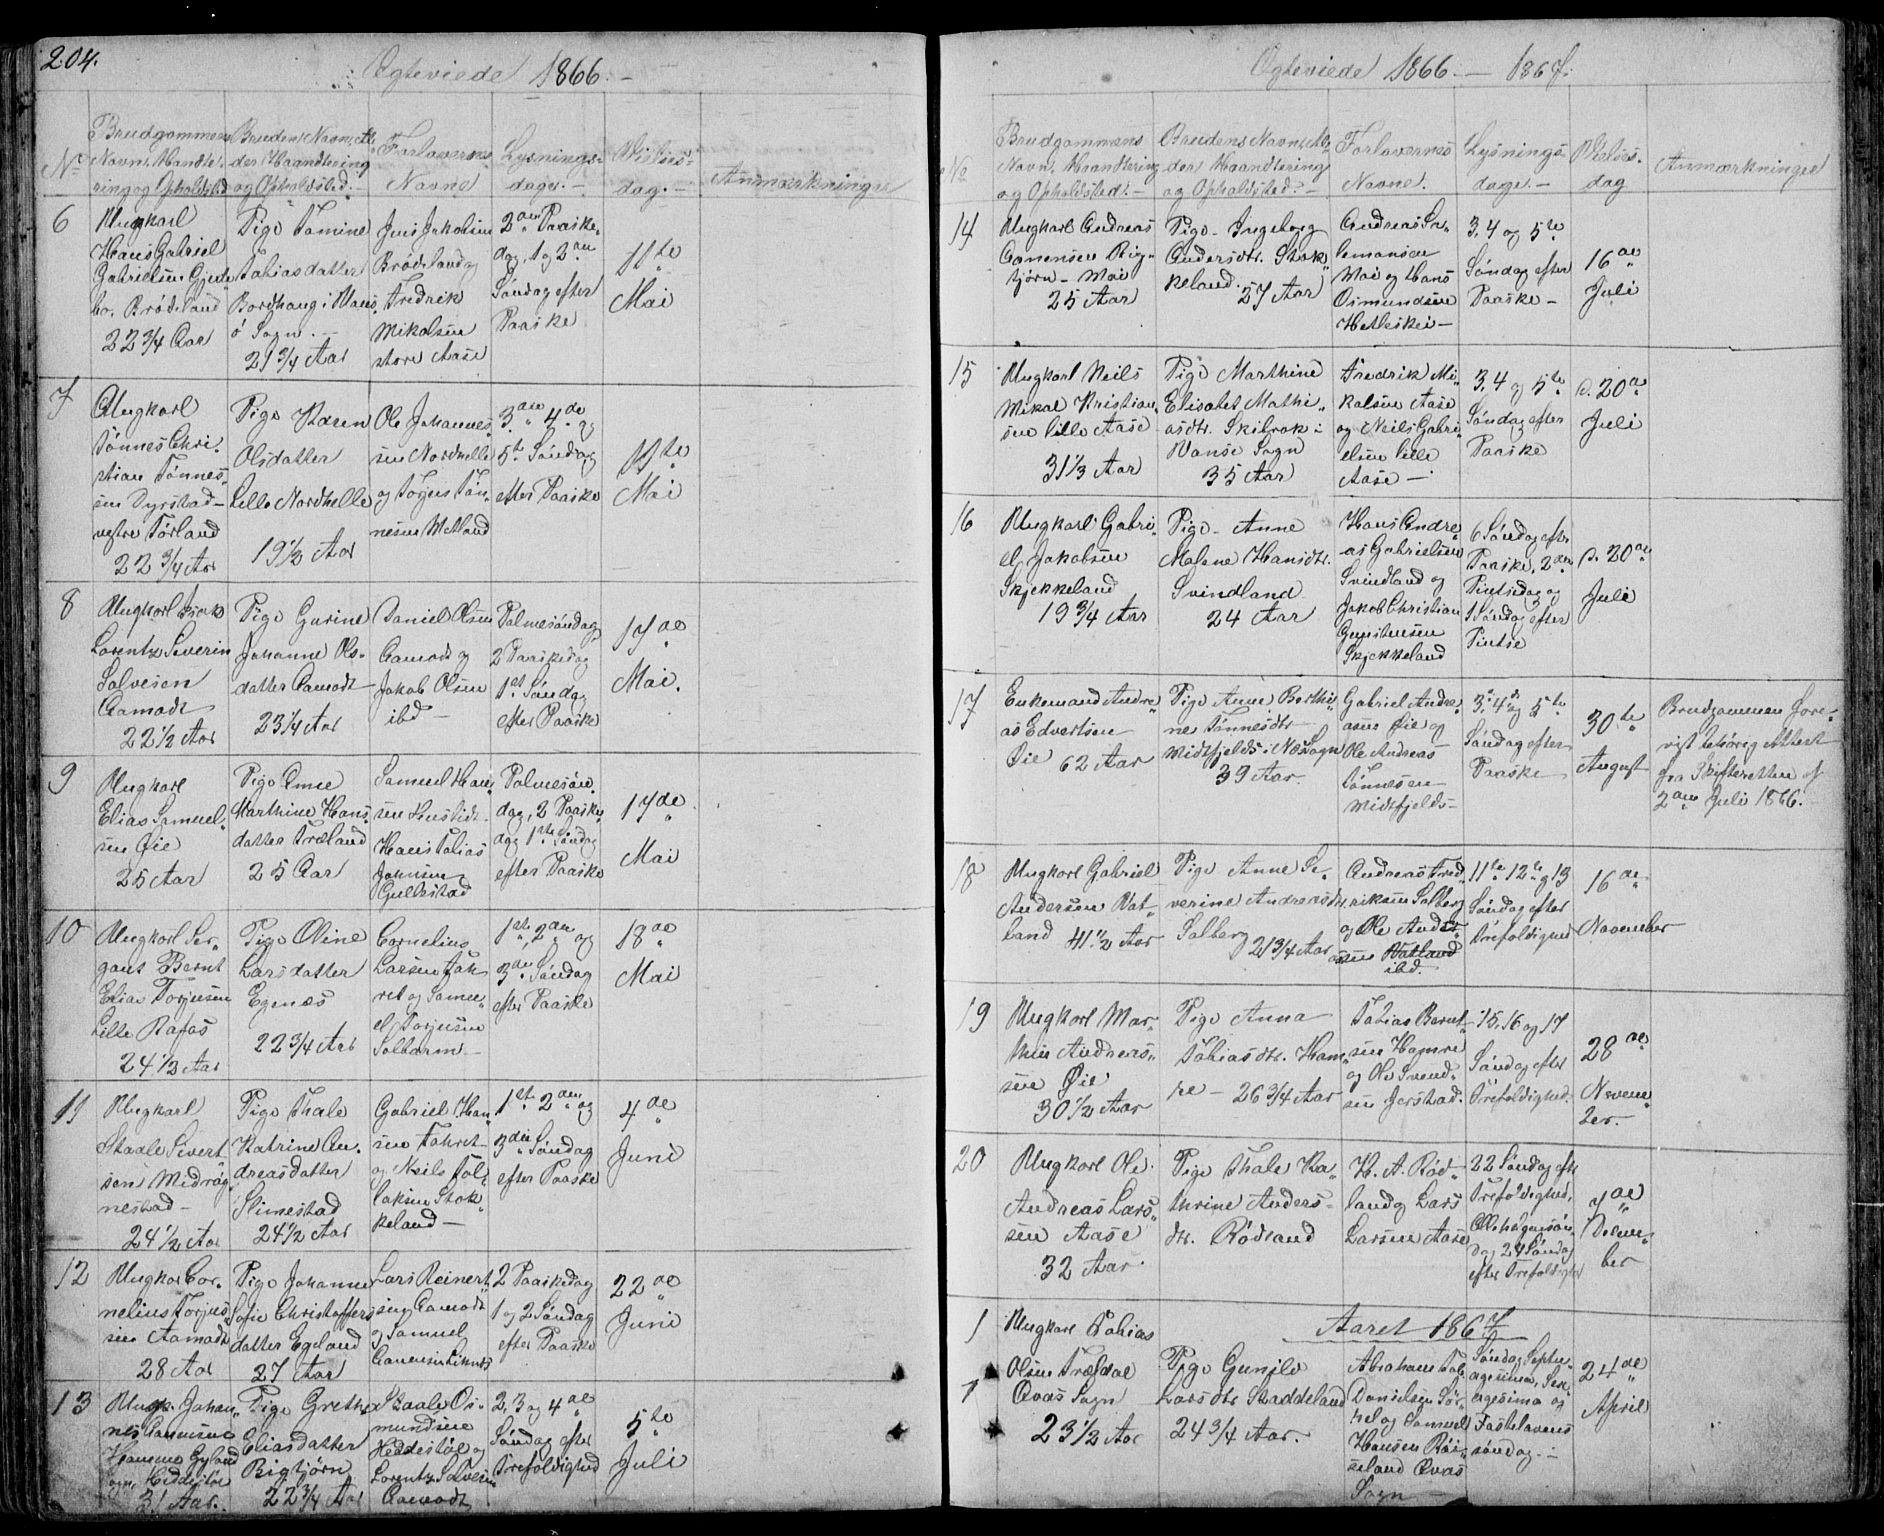 204.
Ægteviede 1866. -
No
Brudgommens
Navn, Handte-
ring og Opholdsted
Brudens Navn, Al-
der Haandtering
og Opholdsted. -
Forlovernes
Navne
Lysnings-
dage. -
Vielses-
dag. -
Anmærkninger
6
Ungkarl
Hans Gabriel
Gabrielsen
Brødsland
22 3/4 Aar
Pige Tomine
Tobiasdatter
Bordhaug i Vans
ø Sogn. -
21 3/4 Aar
Jens Jakobsen
Brødsland og
Fredrik
Mikalsen
store Aase
2den Paaske-
dag, 1 og 2den
Søndag efter
Paaske
11te
Mai
7
Ungkarl
Tønnes Chri-
stian Tønnes-
sen Dyrstad -
vestre Tørland
22 3/4 Aar
Pige Karen
Olsdatter
Lille Nordhelle
19 1/2 Aar
Ole Johannes-
sen Nordhelle
og Torjus Tøn-
nesen Metland
3die 4de og
5te Søndag
efter Paaske
11te
Mai
8
Ungkarl
Lorentz Severin
Salvesen
Aamodt
22 1/2 Aar
Pige Gurine
Johanne Ols-
datter Aamodt
23 1/4 Aar
Daniel Olsen
Aamodt og
Jakob Olsen
ibd -
Palmesøndag
2 Paaskedag
1ste Søndag
efter Paaske
17de
Mai.
9
Ungkarl
Elias Samuel-
sen Øie
25 Aar
Pige Anne
Marthine Hans-
datter Træland
25 Aar
Samuel Han-
sen
Hans Tobias
Johnsen
Gullestad
Palmesøn-
dag, 2 Paaske-
dag 1ste Søndag
efter Paaske
17de
Mai
10
Ungkarl Ser-
gant Bernt
Elias Torjusen
Lille Rafos
24 1/2 Aar
Pige Oline
Larsdatter
Egenæs
22 3/4 Aar
Cornelius
Larsen
og Samu-
el Torjusen
Solbarm -
1ste, 2den og
3die Søndag
efter Paaske
18de
Mai
11
Ungkarl
Staale Sivert
sen Midrøg-
nestad -
24 1/2 Aar
Pige Thale
Katrine An-
dreasdatter
Slimestad
24 1/2 Aar
Gabriel Han-
sen
og Neils Tol-
laksen Stok-
keland -
1ste 2den og
3die Søndag
efter Paaske
4de
Juni
12
Ungkarl Cor-
nelius Torjus-
sen Aamodt
28 Aar
Pige Johanne
Sofie Christoffers
datter Egeland
27 Aar
Lars Reinert-
sen Aamodt
og Samuel
2 Paaskedag
1 og 2 Søndag
efter Paaske
22de
Juni
13
Ungk. Johan-
nes
Gyland
Sogn, Heddestøe
31 Aar.
Pige Grethe
Eliasdatter
Rigtjørn
22 3/4 Aar
Staale Os-
mundsen
Heddestøl og
Lorentz Salvesen
Aamodt
2, 3 og 4de
Søndag efter
Trefoldighed
5te
Juli
Ægteviede 1866. - 1867.
No
Brudgommens
Navn, Haandtering
og Opholdsted. -
Brudens Navn, Al-
der Haandtering
og Opholdsted. -
Forlovernes
Navne.
Lysnings-
dage. -
Vielses-
dag
Anmærkninger
14
Ungkarl Andreas
Rig-
tjørn - Moi
25 Aar
Pige Ingeborg
Andersdtr. Stok-
keland. 27 Aar
Andreas Sa-
lomonsen
Moi og Hans
Osmundsen
Hetleskei -
3, 4 og 5te
Søndag efter
Paaske -
16de
Juli
15
Ungkarl Neils
Mikal Kristian-
sen lille Aase
31 1/3 Aar
Pige Marthine
Elisabet Mathi-
asdtr. Skibrok i
Vanse Sogn
35 Aar
Fredrik Mi-
kalsen Aase
og Neils Gabri-
elsen lille
Aase -
3, 4 og 5te
Søndag efter
Paaske
d. 20de
Juli
16
Ungkarl Gabri-
el Jakobsen
Skjekkeland
19 3/4 Aar
Pige Anne
Malene Hansdtr.
Svindland
24 Aar
Hans Andre-
as Gabrielsen
Svindland og
Jakob Christian
Gunstensen
Skjekkeland
6 Søndag efter
Paaske, 2den
Pintsedag og
1 Søndag efter
Pintse
d. 20de
Juli
17
Enkemand Andre-
as Edvertsen
Øie 62 Aar
Pige Anne Berthi-
ne Tønnesdtr
Midtfjelds i Næs Sogn
39 Aar
Gabriel Andre-
asen Øie og
Ole Andreas
Tønnesen
Midtfjelds -
3, 4 og 5te
Søndag efter
Paaske
30te
August
Brudgommen fore-
vist behørig Attest
fra Skifteretten af
2den Juli 1866. -
18
Ungkarl Gabriel
Andersen Vat-
land 41 1/2 Aar
Pige Anne Se-
verine Andreasdtr.
Solberg 21 3/4 Aar
Andreas Fred-
riksen Solberg
og Ole Anders-
sen Vatland
ibd.
11te 12te og 13
Søndag efter
Trefoldighed
16de
November
19
Ungkarl Mar-
thin Andreas-
sen Øie
30 1/2 Aar
Pige Anna
Tobiasdtr. Ham-
re - 26 3/4 Aar
Tobias Bernt-
sen Hamre
og Ole Svend-
sen Jerstad.
15, 16 og 17
Søndag efter
Trefoldighed.
28de
Novem-
ber. -
20
Ungkarl Ole
Andreas Lars-
sen Aase
32 Aar.
Pige Thale Ka-
thrine Anders-
dtr. Rødland
H. A. Rød-
land og Lars
Larsen Aase
22 Søndag eft.
Trefoldighed,
Allehelgensøn-
dag 24 Søndag
efter Trefoldighed
7de
Decem-
ber
Aaret 1867
1
Ungkarl Tobias
Olsen Trældal
Qvas Sogn
23 1/2 Aar
1
Pige Gunild
Larsdtr Staddeland
24 3/4 Aar.
Abraham
Danielsen
og Samuel
Hansen Røi-
seland Qvas
Sogn -
Søndag Septu-
agesima, Sex-
agesima og
Fastelavens
søndag. -
24de
April